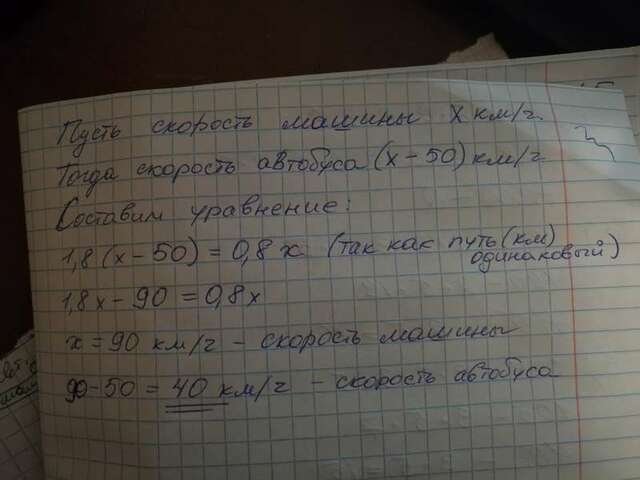 Пусть скорость машины x км/ч.
Тогда скорость автобуса (x - 50) км/ч
Составим уравнение:
1,8 (x - 50) = 0,8 x (так как путь (км) одинаковый)
1,8x - 90 = 0,8x
x = 90 км/ч - скорость машины
90 - 50 = 40 км/ч - скорость автобуса